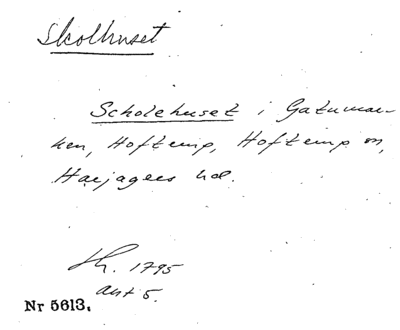 Skolhuset
Scholehuset i Gatumar-
ken, Hofterup, Hofterup sn,
Harjagers hd.
Th. 1795
akt 5.
Nr 5613.